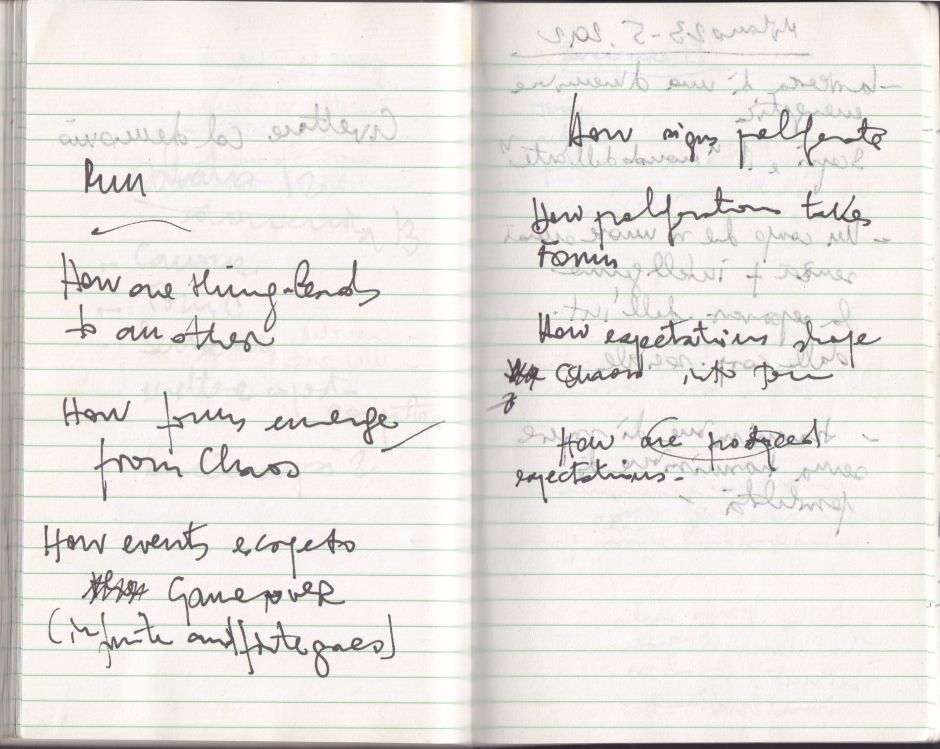 Run
How one thing leads
to another
How forms emerge
from Chaos
How events escape to
Game over
(infinite and finite games)
How signs proliferate
How proliferation takes
Form
How expectations shape
Chaos into form
How are produced
expectations -